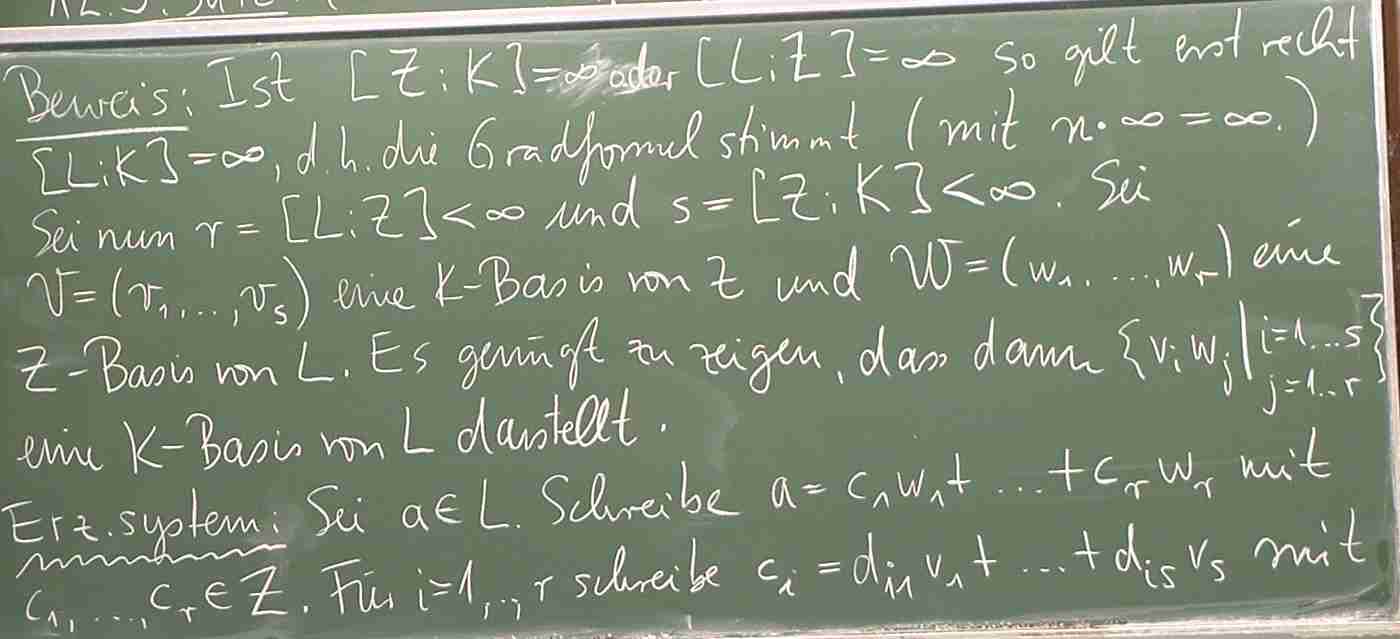 Beweis: Ist [Z:K]=∞ oder [L:Z]=∞ so gilt erst recht
[L:K]=∞, d.h. die Gradformel stimmt (mit n·∞=∞.)
Sei nun r = [L:Z]<∞ und s=[Z:K]<∞. Sei
V=(v₁,...,vₛ) eine K-Basis von Z und W=(w₁,...,wᵣ) eine
Z-Basis von L. Es genügt zu zeigen, dass dann {vᵢwⱼ | i=1...s j=1..r}
eine K-Basis von L darstellt.
Erz.system: Sei a∈L. Schreibe a = c₁w₁+ ... +cᵣwᵣ mit
c₁,...,cᵣ∈Z. Für i=1,..,r schreibe cᵢ = dᵢ₁v₁+ ... +dᵢₛvₛ mit